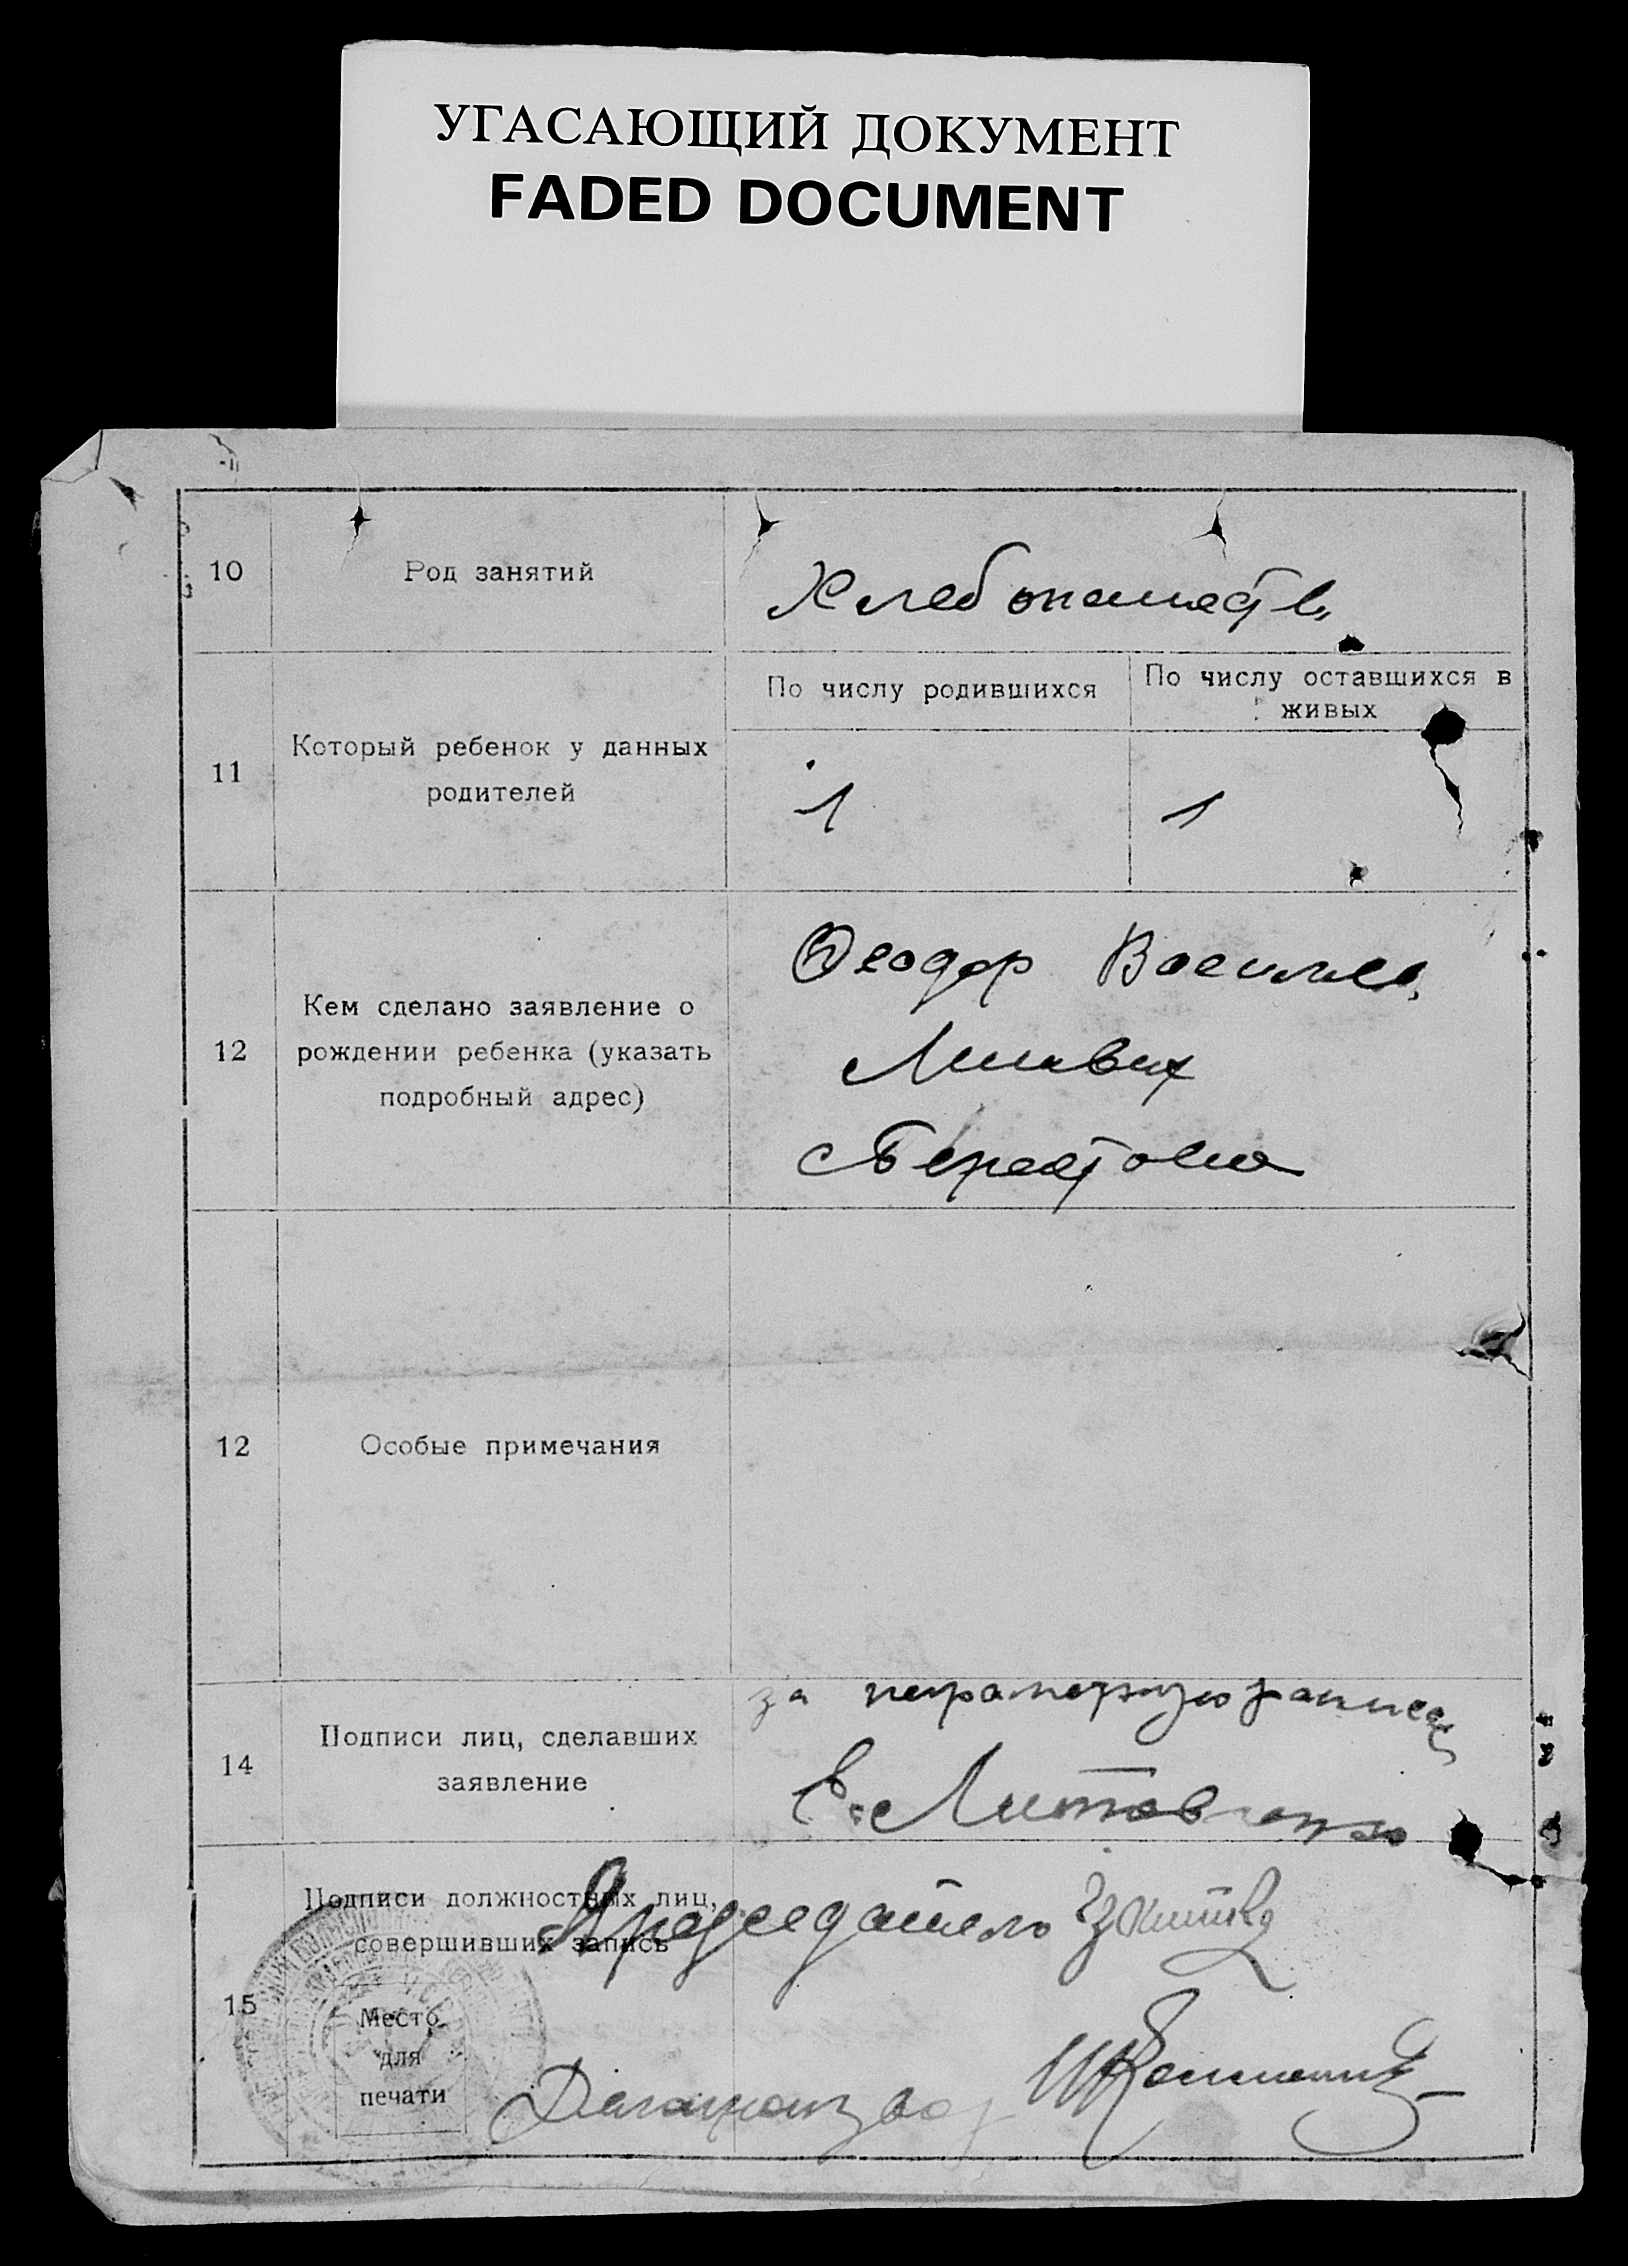 УГАСАЮЩИЙ ДОКУМЕНТ
FADED DOCUMENT
10
Род занятий
Хлебопашеств
11
Который ребенок у данных
родителей
По числу родившихся
По числу оставшихся в
живых
1
1
12
Кем сделано заявление о
рождении ребенка (указать
подробный адрес)
Феодор Василье
12
Особые примечания
14
Подписи лиц, сделавших
заявление
за неграмотную
Е. Литов
15
Подписи должностных лиц,
совершивших запись
Председатель
Место
для
печати
Делопроизвод